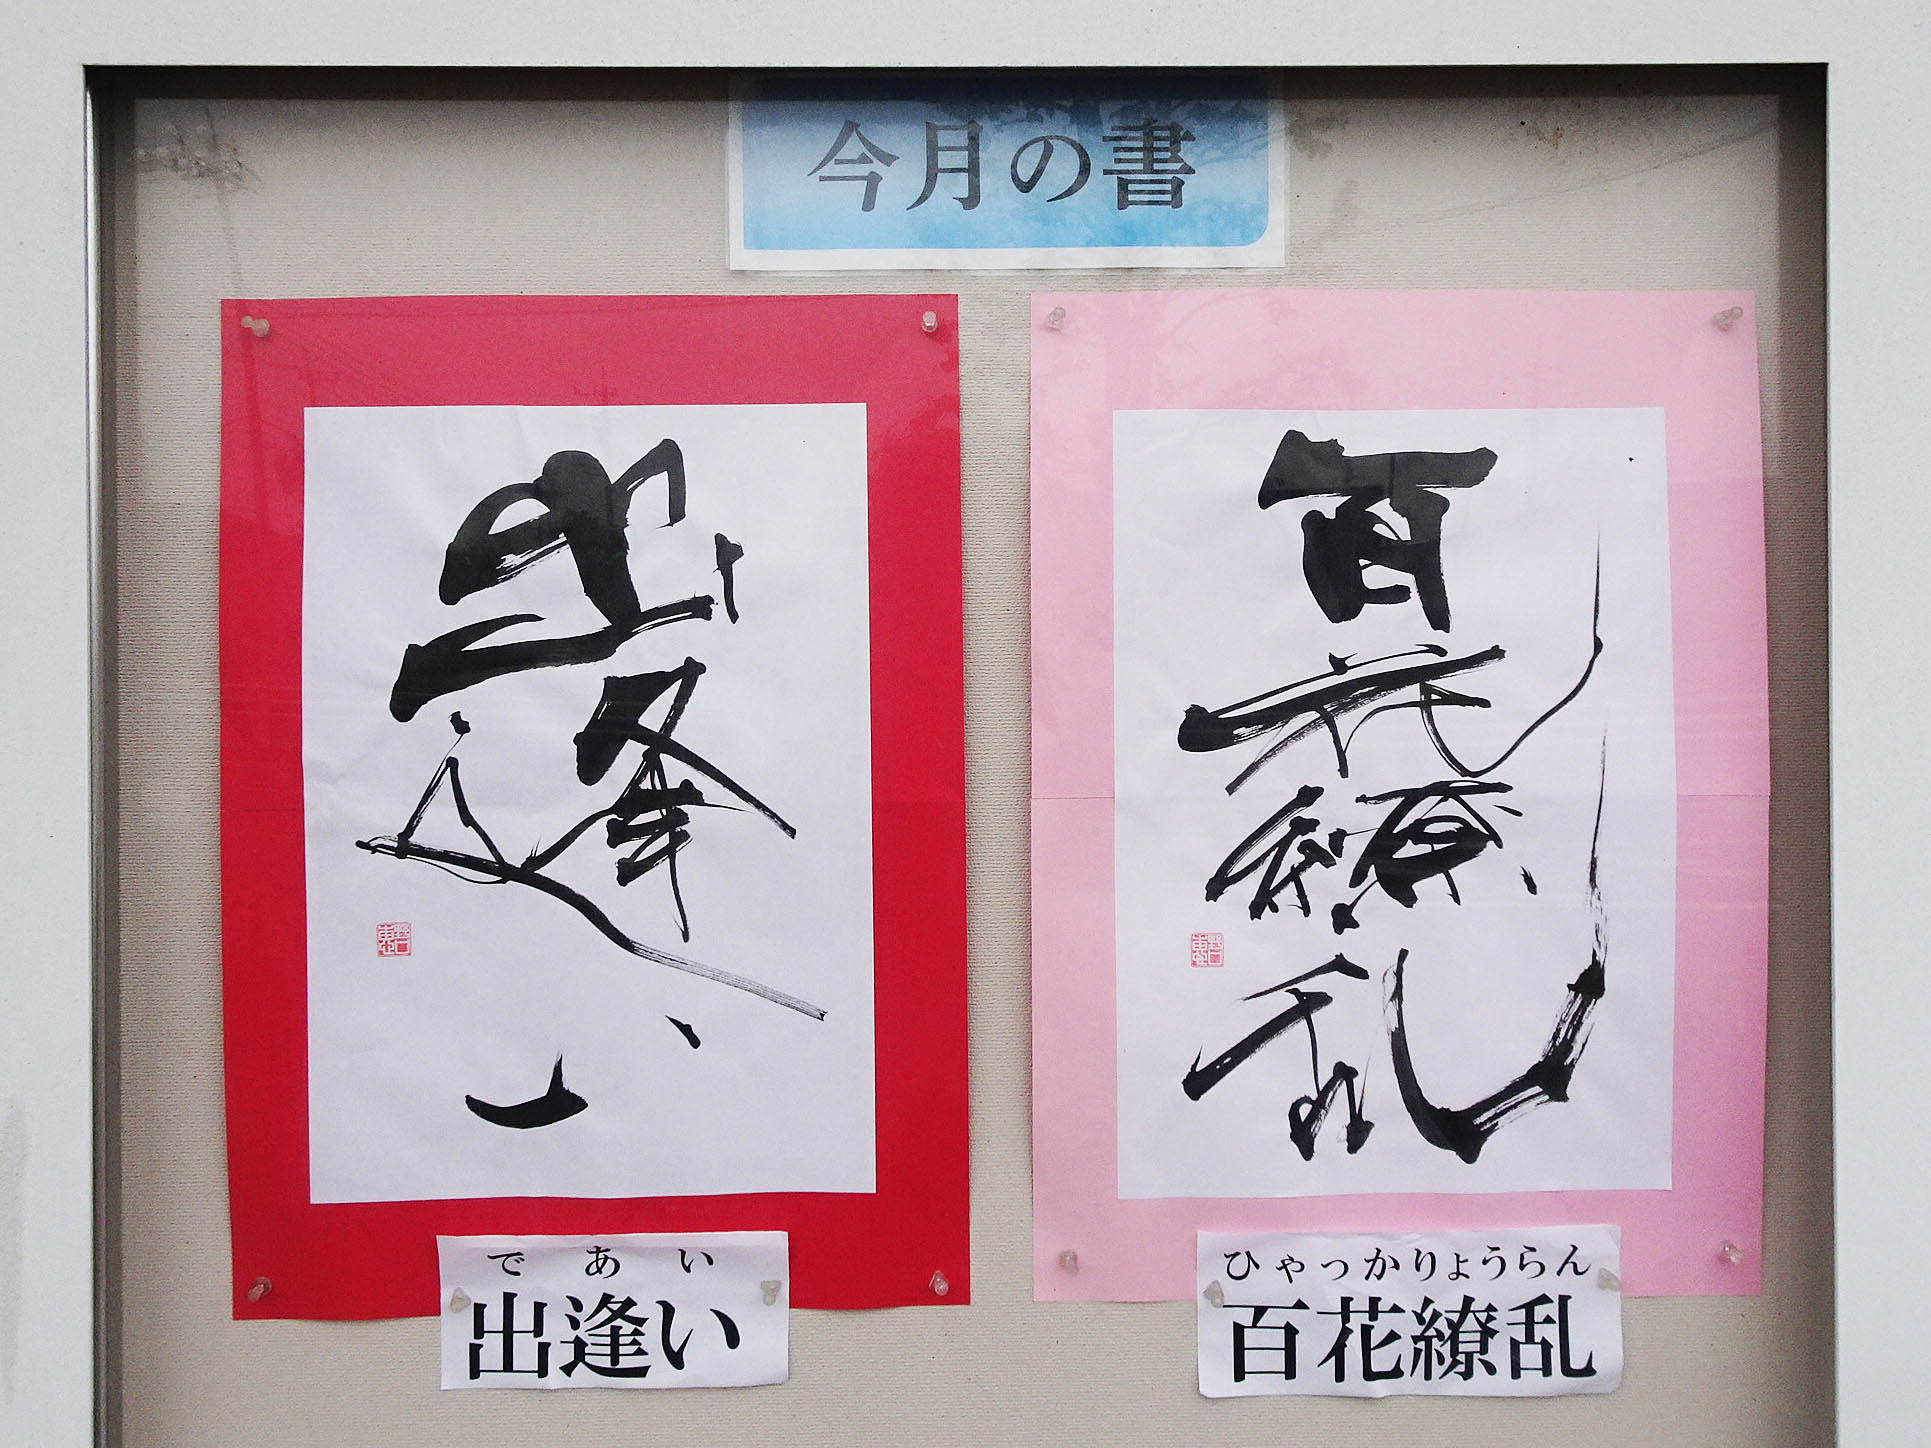 今月の書
出逢い
であい
出逢い
百花繚乱
ひゃっかりょうらん
百花繚乱